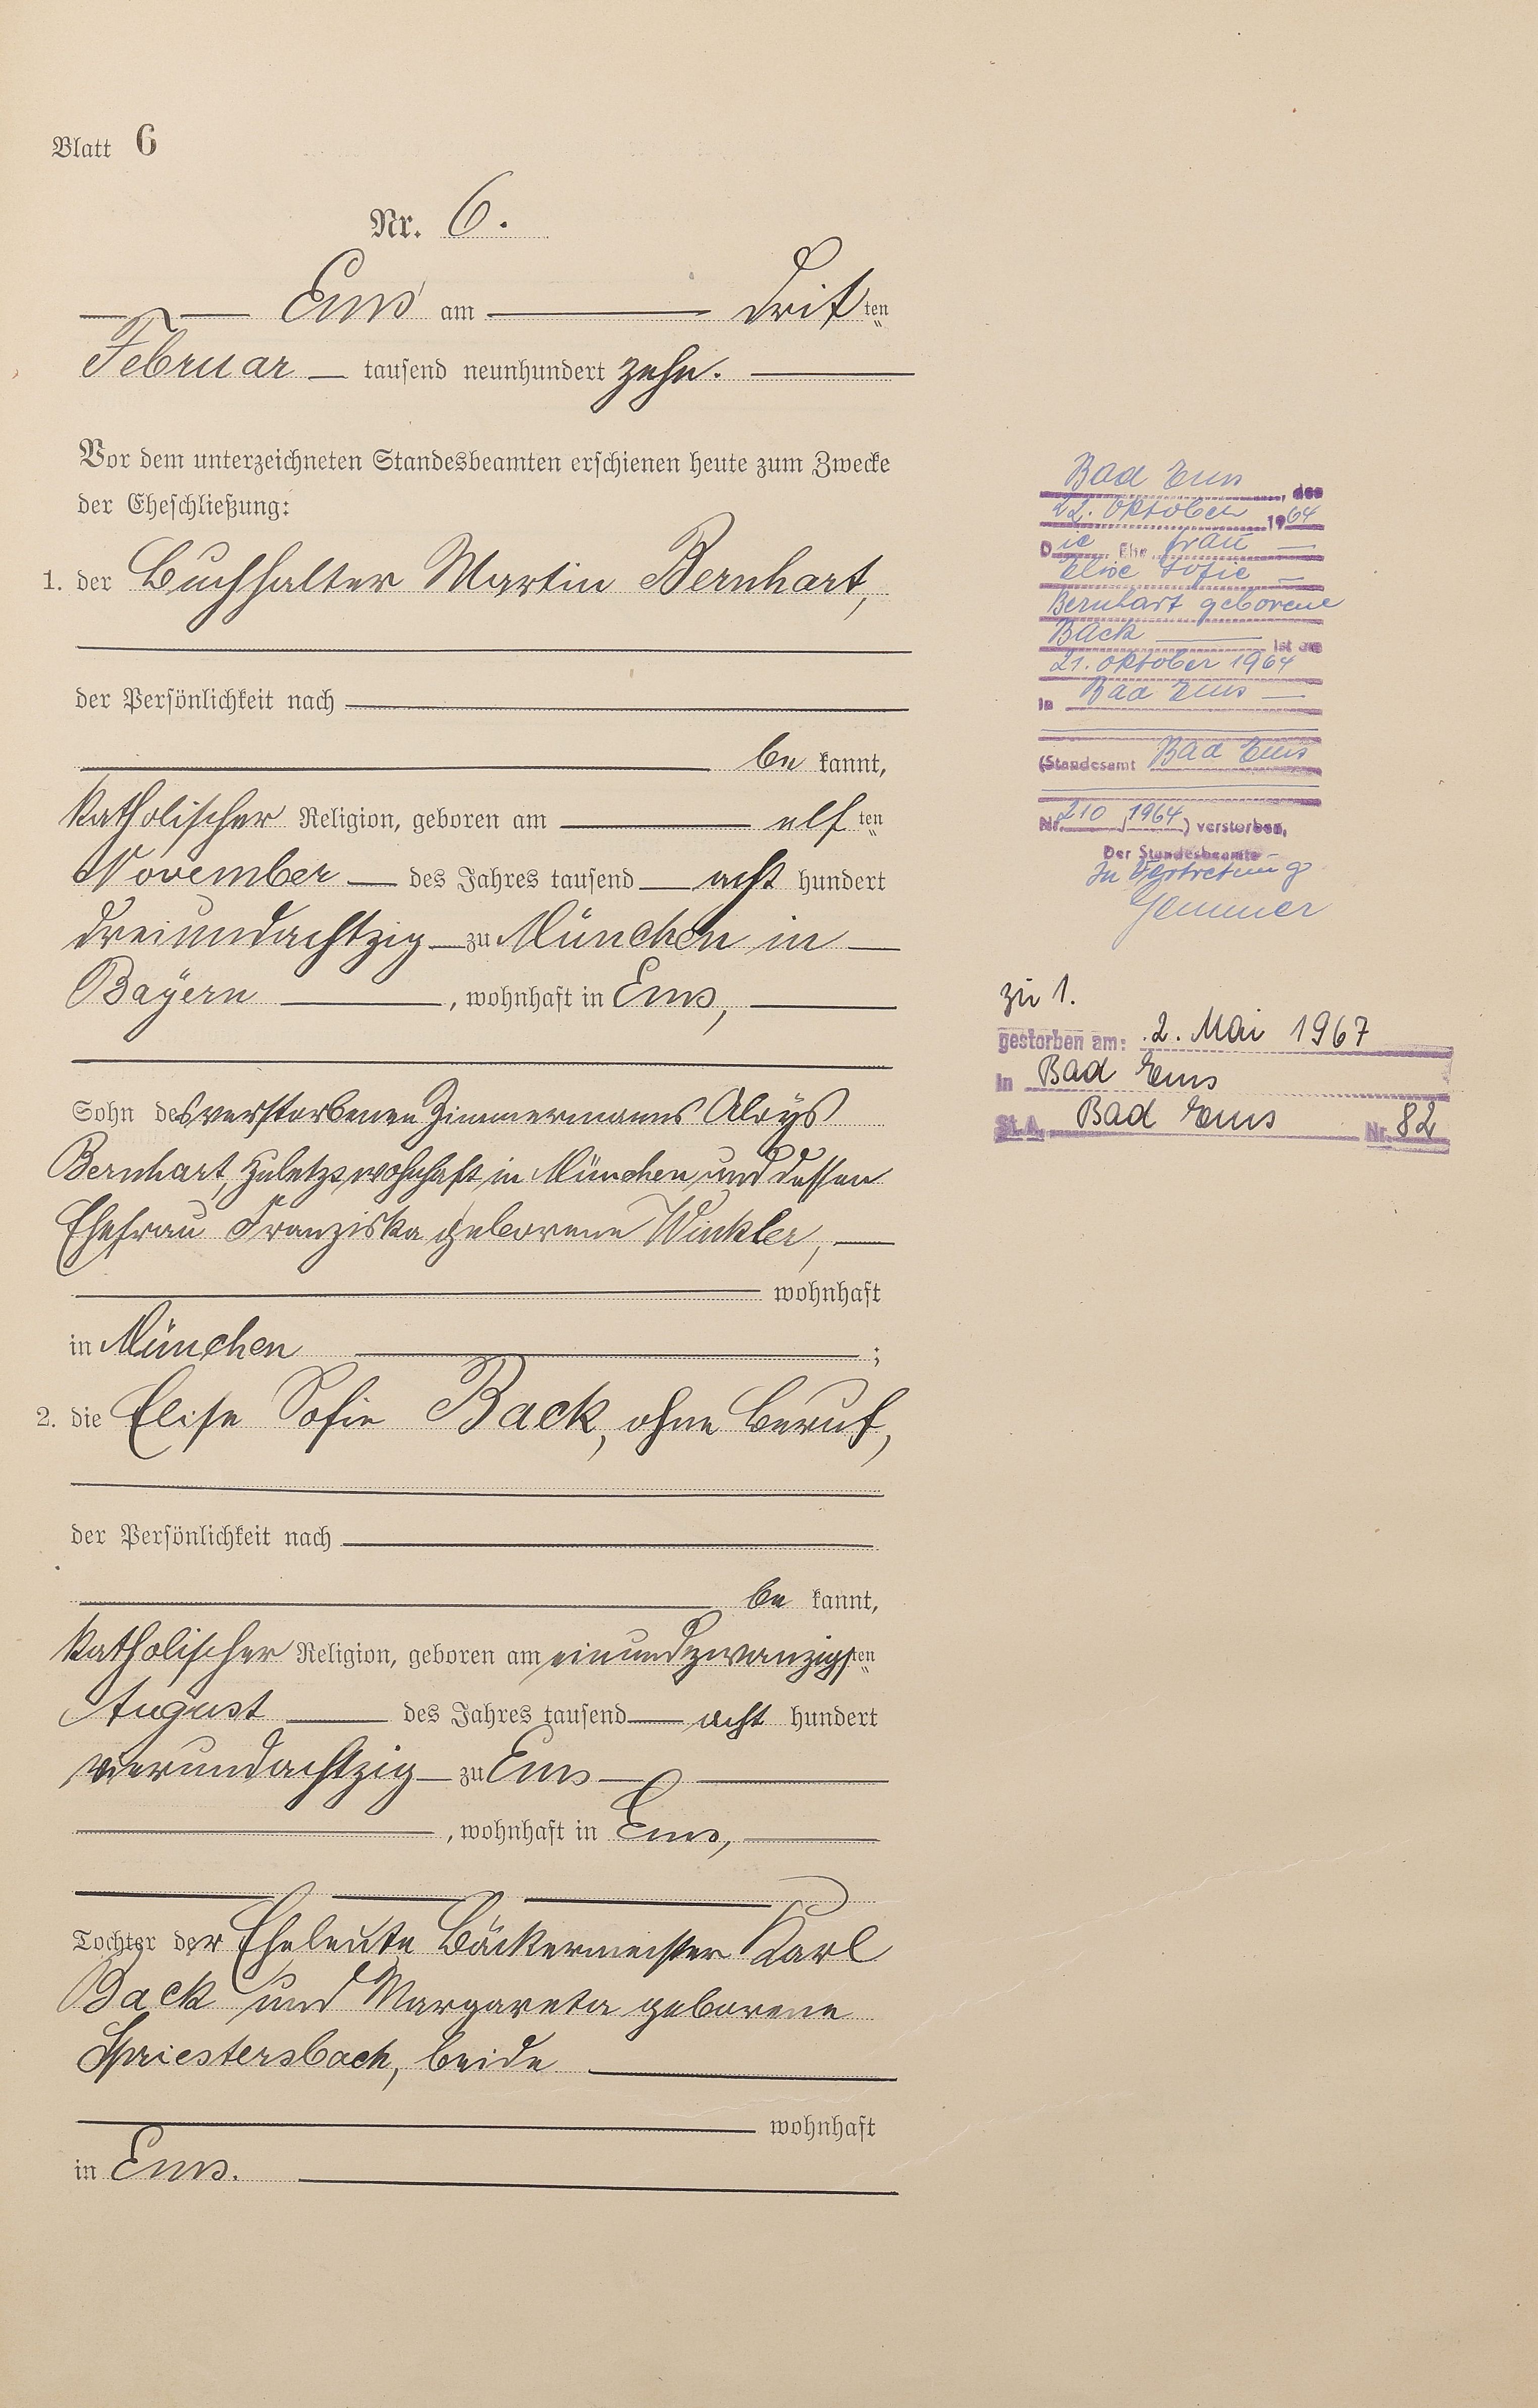 Blatt 6
Nr. 6.
Ems am Dritten
Februar tausend neunhundert zehn.
Vor dem unterzeichneten Standesbeamten erschienen heute zum Zwecke
der Eheschließung:
1. der Buchhalter Martin Bernhart,
der Persönlichkeit nach
be kannt,
katholischer Religion, geboren am elf ten
November des Jahres tausend acht hundert
dreiundachtzig zu München in
Bayern, wohnhaft in Ems,
Sohn des verstorbenen Zimmermanns Aloys
Bernhart, zuletzt wohnhaft in München und dessen
Ehefrau Franziska geborene Winkler,
wohnhaft
in München ;
2. die Elise Sofie Back, ohne Beruf,
der Persönlichkeit nach
be kannt,
katholischer Religion, geboren am einundzwanzigsten
August des Jahres tausend acht hundert
vierundachtzig zu Ems
, wohnhaft in Ems,
Tochter der Eheleute Bäckermeister Karl
Back und Margareta geborene
Spriestersbach, beide
wohnhaft
in Ems.
Bad Ems, den
22. Oktober 1964
Die Ehefrau
Elise Sofie
Bernhart geborene
Back ist am
21. Oktober 1964
in Bad Ems
(Standesamt Bad Ems
Nr. 210/1964) verstorben,
Der Standesbeamte
In Vertretung
Gemmer
zu 1.
gestorben am: 2. Mai 1967
in Bad Ems
St.A. Bad Ems Nr. 82